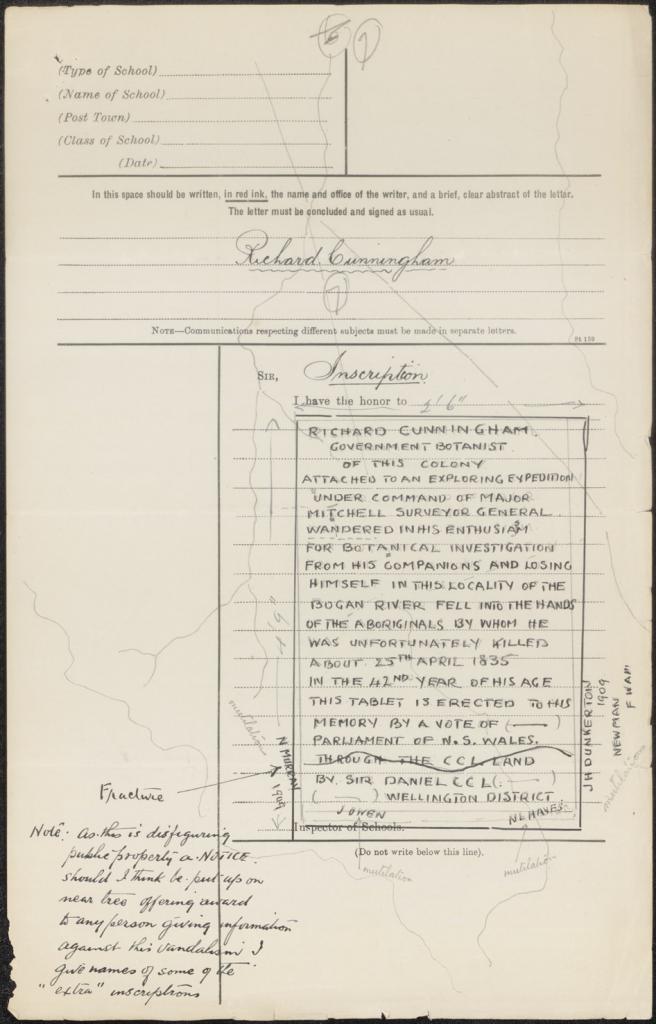 7
(Type of School)
(Name of School)
(Post Town)
(Class of School)
(Date)
In this space should be written, in red ink, the name and office of the writer, and a brief, clear abstract of the letter.
The letter must be concluded and signed as usual.
Richard Cunningham
7
NOTE—Communications respecting different subjects must be made in separate letters.
St 159
SIR, Inscription
I have the honor to 2' 6"
RICHARD CUNNINGHAM
GOVERNMENT BOTANIST
OF THIS COLONY
ATTACHED TO AN EXPLORING EXPEDITION
UNDER COMMAND OF MAJOR
MITCHELL SURVEYOR GENERAL
WANDERED IN HIS ENTHUSIASM
FOR BOTANICAL INVESTIGATION
FROM HIS COMPANIONS AND LOSING
HIMSELF IN THIS LOCALITY OF THE
BOGAN RIVER FELL INTO THE HANDS
OF THE ABORIGINALS BY WHOM HE
WAS UNFORTUNATELY KILLED
ABOUT 25TH APRIL 1835
IN THE 42ND YEAR OF HIS AGE
THIS TABLET IS ERECTED TO HIS
MEMORY BY A VOTE OF (——)
PARLIAMENT OF N.S. WALES.
THROUGH THE C C L LAND
BY. SIR DANIEL C C L (——)
(——) WELLINGTON DISTRICT
J OWEN
N L HAYES
Inspector of Schools.
(Do not write below this line).
J H DUNKERTON
1909
NEWMAN
mutilation
mutilation
N MURRAY
1909
Fracture
mutilation
mutilation
Note: as this is disfiguring
public property a NOTICE
should I think be put up on
near tree offering reward
to any person giving information
against this vandalism I
give names of some of the
"extra" inscriptions